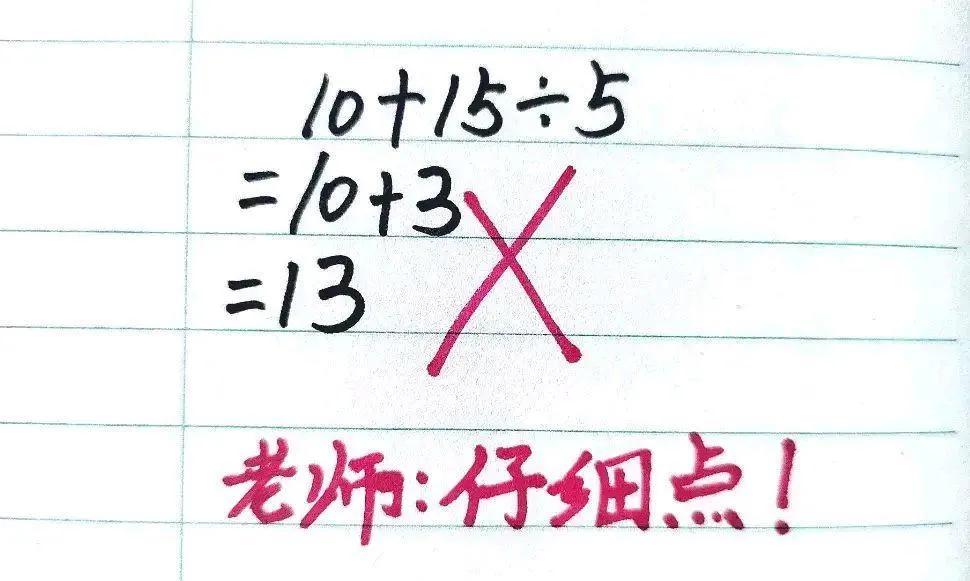 10+15÷5
=10+3
=13
老师:仔细点!